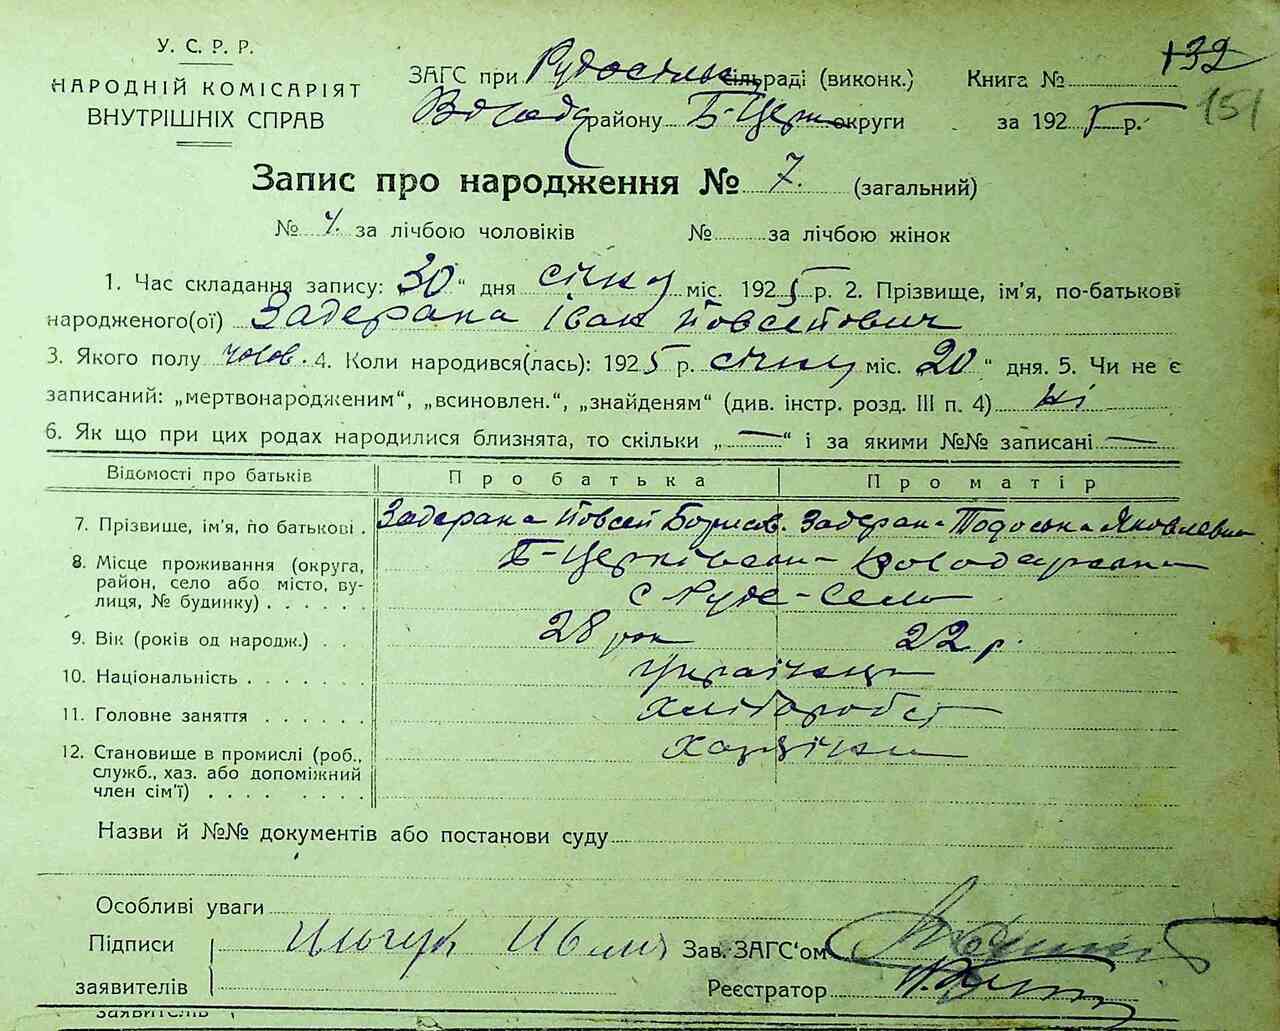 У. С. Р. Р.
НАРОДНІЙ КОМІСАРІЯТ
ВНУТРІШНІХ СПРАВ
132
151
ЗАГС при Рудосільс сільраді (виконк.) Книга №
району Б-Церк округи за 1925 р.
Запис про народження № 7. (загальний)
№ за лічбою чоловіків № за лічбою жінок
1. Час складання запису: 30 " дня січня міс. 1925 р. 2. Прізвище, ім'я, по-батькові
народженого(ої) Задерака Іван Йовсепович
3. Якого полу чолов. 4. Коли народився(лась): 1925 р. січня міс. 20 " дня. 5. Чи не є
записаний: „мертвонародженим“, „всиновлен.“, „знайденям“ (див. інстр. розд. III п. 4) ні
6. Як що при цих родах народилися близнята, то скільки „—“ і за якими №№ записані —
Відомості про батьків Про батька Про матір
7. Прізвище, ім'я, по батькові . Задерака Йовсеп Борисов. Задерака Тодоська Яковлевна
8. Місце проживання (округа, Б-Церківська Володарська
район, село або місто, ву-
лиця, № будинку) . . . . . . с Руде-Село
9. Вік (років од народж.) . . 28 рок 22 р.
10. Національність . . . . . . . українці
11. Головне заняття . . . . . . хлібороби
12. Становище в промислі (роб.,
служб., хаз. або допоміжний
член сім'ї) . . . . . . . . .
Назви й №№ документів або постанови суду
Особливі уваги
Підписи Зав. ЗАГС'ом
заявителів Реєстратор
заявителів